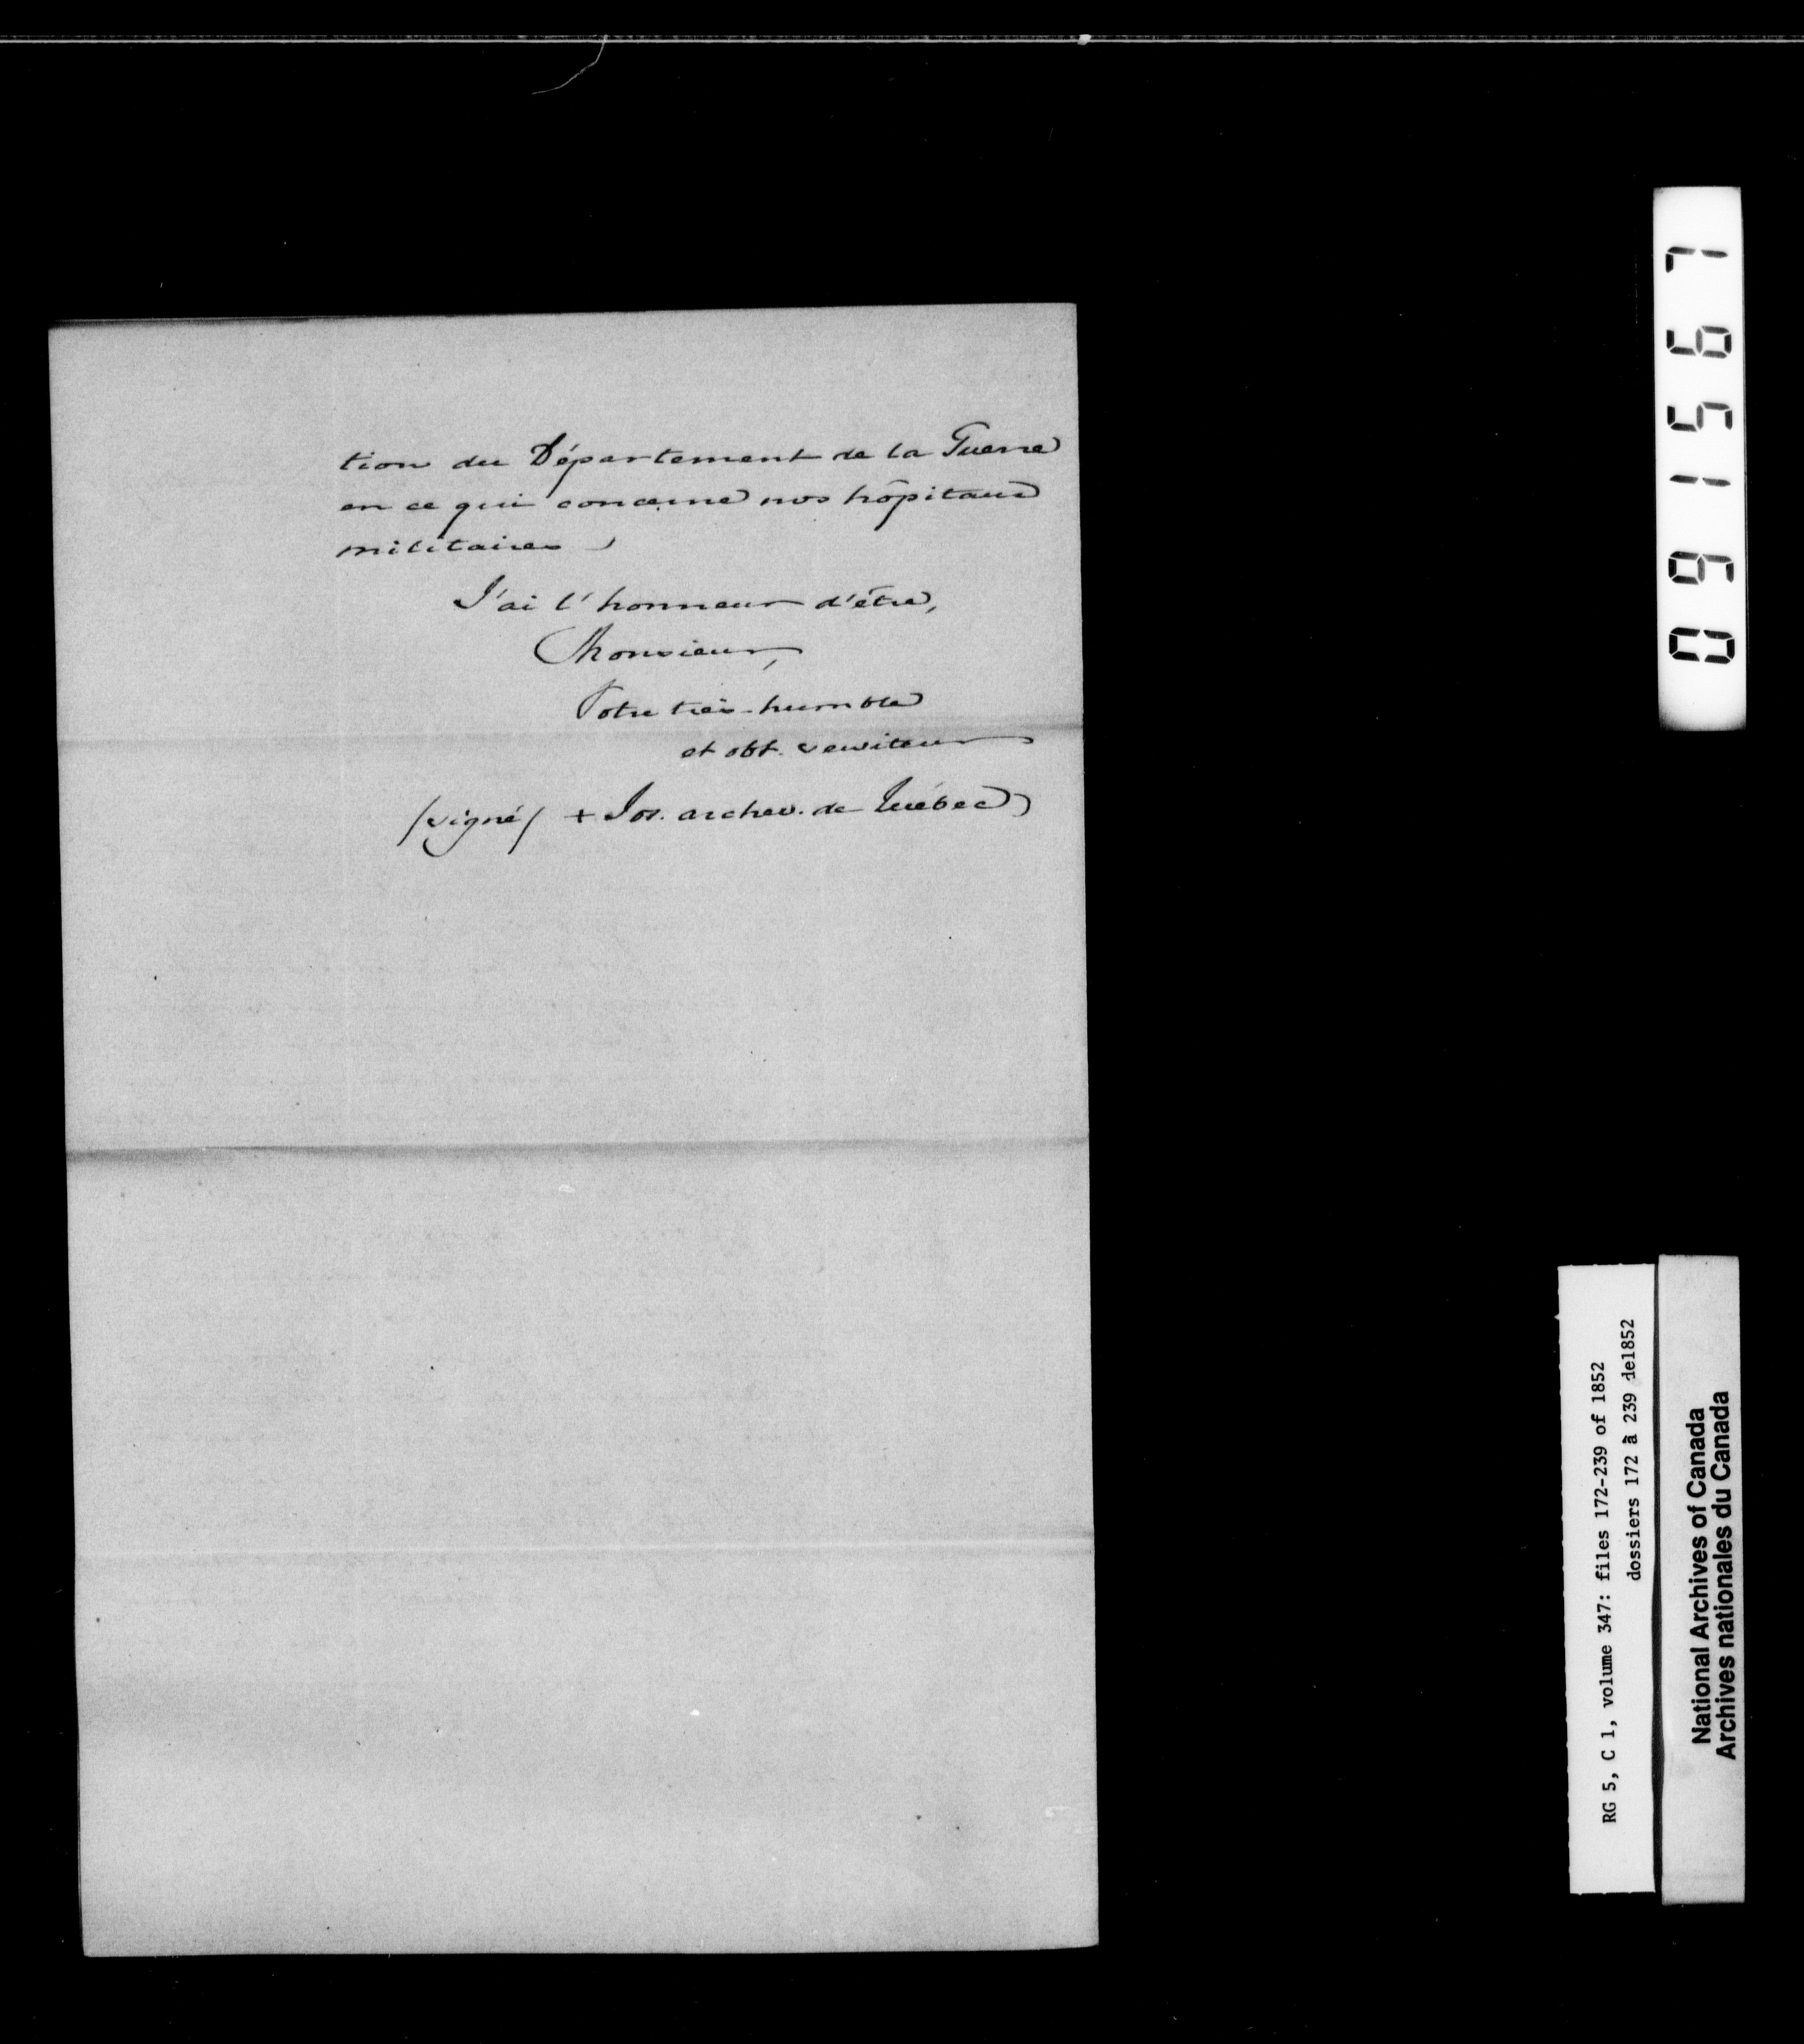 tion du Département de la Guerre
en ce qui concerne nos hôpitaux
militaires
J'ai l'honneur d'être,
Monsieur,
Votre très-humble
et obt. serviteur
(signé) + Jos. archev. de Québec
091567
RG 5, C 1, volume 347: files 172-239 of 1852
dossiers 172 à 239 de1852
National Archives of Canada
Archives nationales du Canada